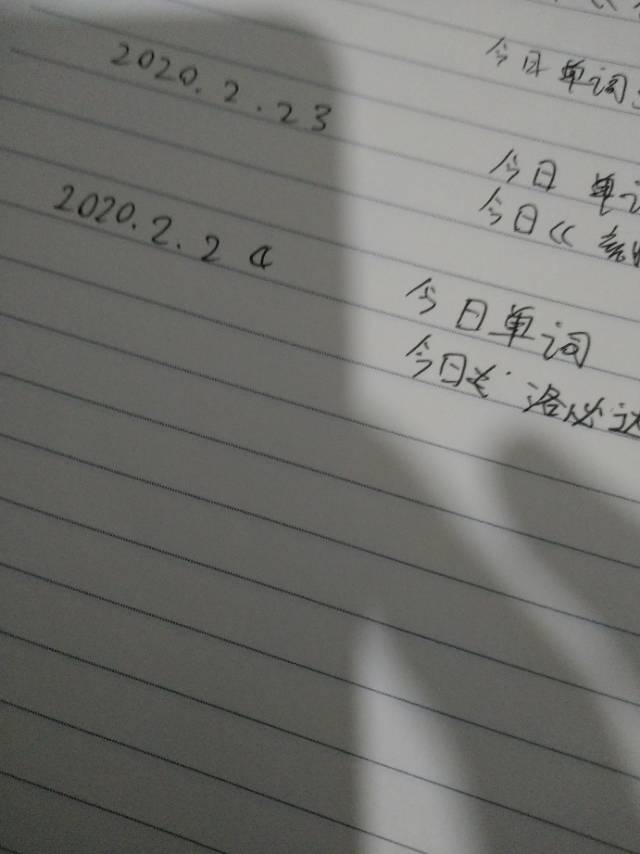 今日单词
2020.2.23
今日 单
今日《
2020.2.24
今日单词
今日 洛必达